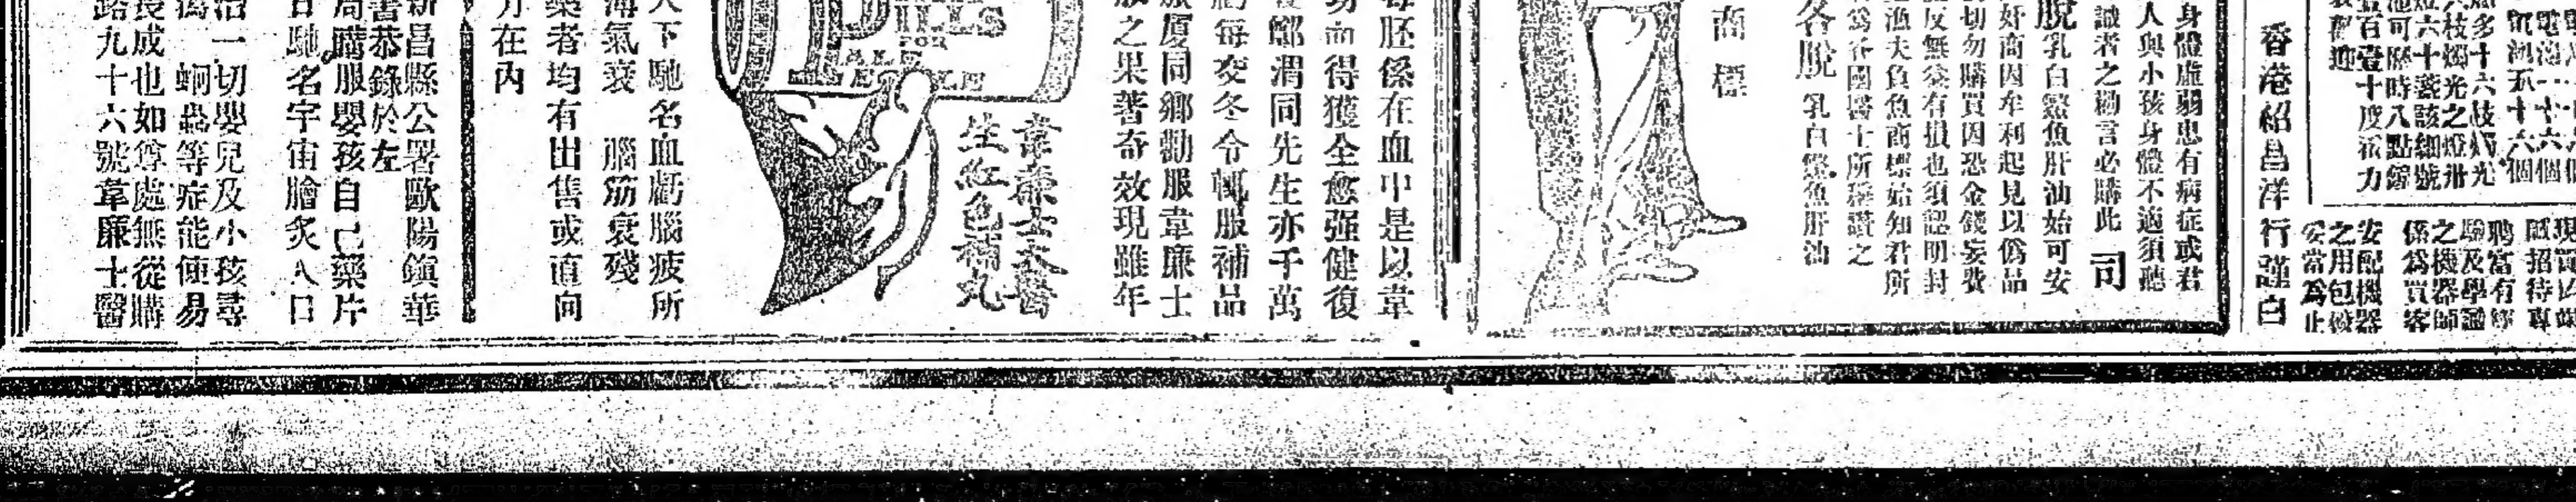 香港紹昌洋行謹白
多十六枝燭光
枝燭光之燈卅
六十盞該細號
池可歷時八點鐘
百壹十度依力
歡迎
招待專
聘富有經
驗及學識
之機器師
係為買客
安配機器
之用包儎
妥當為止
身體虛弱患有病症或君
人與小孩身體不適須聽
識者之勸言必購此司
脫乳白鰵魚肝油始可安
奸商因牟利起見以偽品
切勿購買因恐金錢妄費
反無益有損也須認明封
漁夫負魚商標始知君所
為各國醫士所稱讚之
各脫乳白鰵魚肝油
商標
胚係在血中是以韋
功而得獲全愈强健復
鄉渭同先生亦千萬
每交冬令輒服補品
服廈同鄉勸服韋廉士
之果著奇效現雖年
PILLS
FOR
韋廉士大醫
生紅色補丸
天下馳名血虧腦疲所
海氣衰 腦筋衰殘
藥者均有出售或直向
月在內
新昌縣公署歐陽鎮華
書恭錄於左
局購服嬰孩自己藥片
馳名宇宙膾炙人口
治一切嬰兒及小孩尋
蛔蟲等症能使易
長成也如尊處無從購
路九十六號韋廉士醫